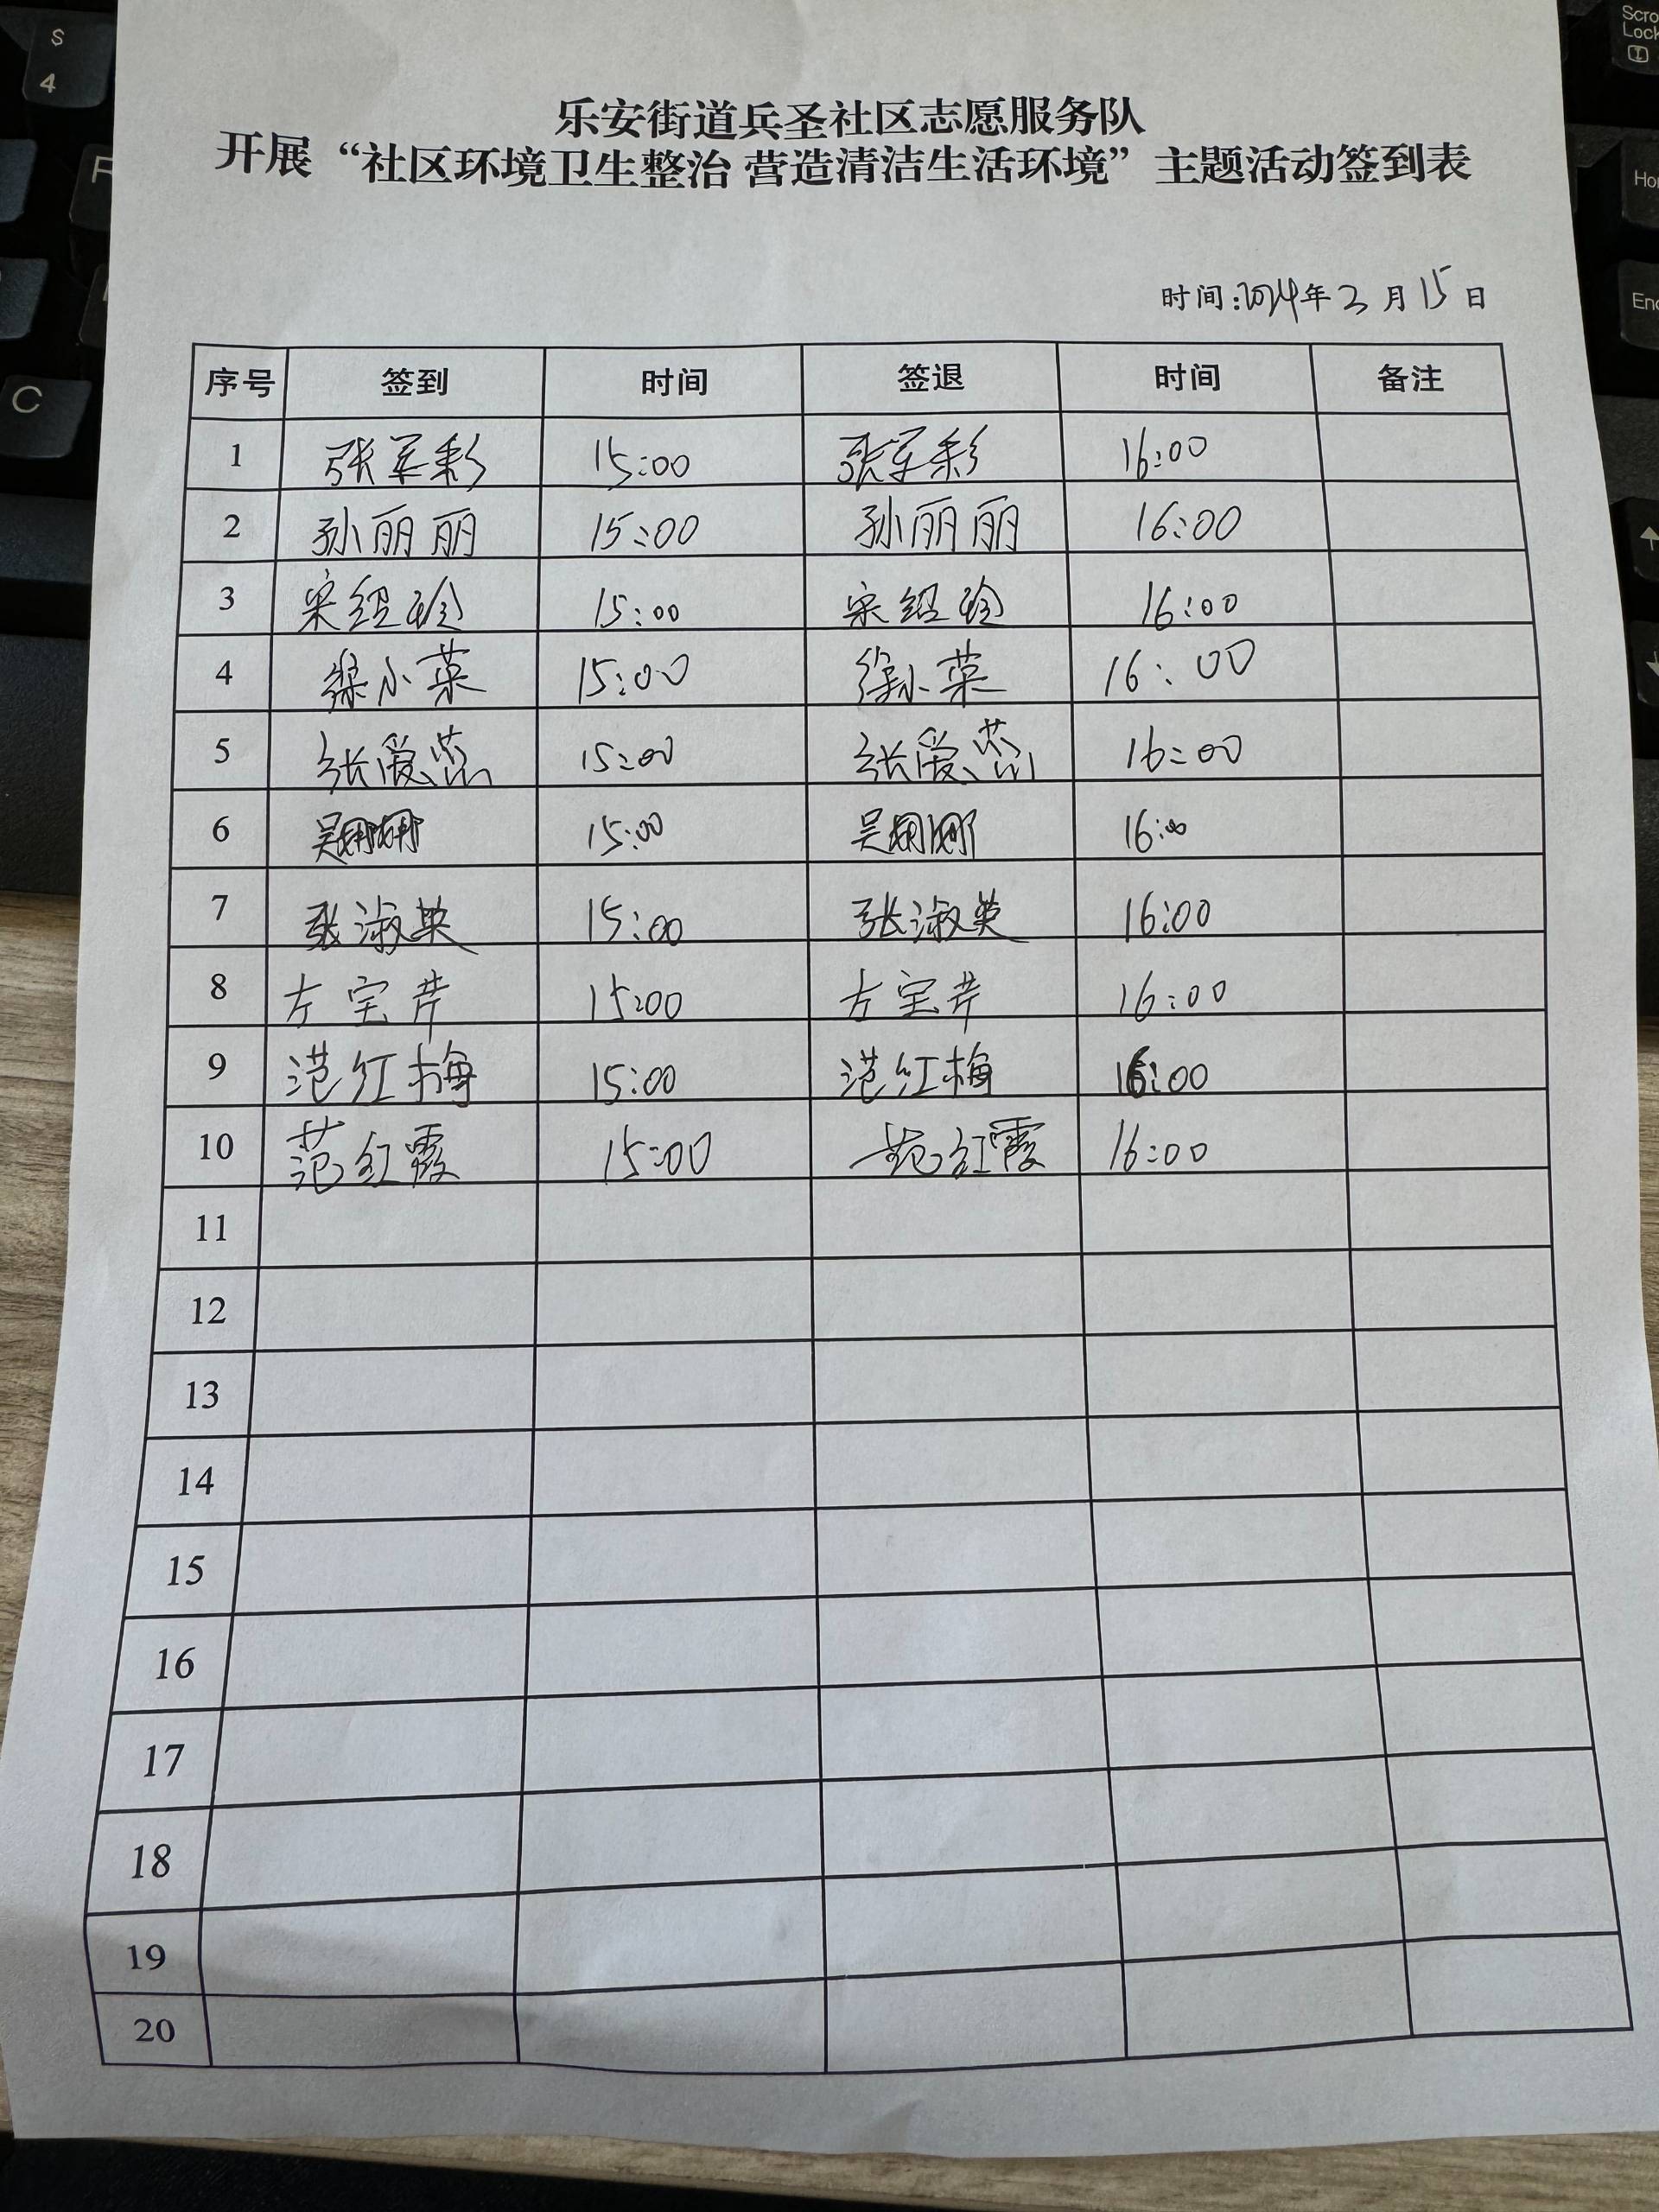 乐安街道兵圣社区志愿服务队
开展“社区环境卫生整治 营造清洁生活环境”主题活动签到表
时间:2024年3月15日
序号 签到 时间 签退 时间 备注
1 张军彩 15:00 张军彩 16:00
2 孙丽丽 15:00 孙丽丽 16:00
3 宋绍玲 15:00 宋绍玲 16:00
4 徐小菜 15:00 徐小菜 16:00
5 张爱 15:00 张爱 16:00
6 吴娜娜 15:00 吴娜娜 16:00
7 张淑英 15:00 张淑英 16:00
8 左宝芹 15:00 左宝芹 16:00
9 范红梅 15:00 范红梅 16:00
10 范红霞 15:00 范红霞 16:00
11
12
13
14
15
16
17
18
19
20
S
4
C
Scro
Lock
End